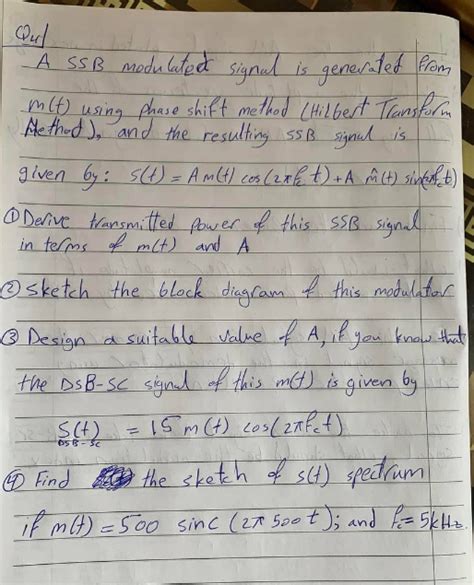 Qu1
A SSB modulated signal is generated from
m(t) using phase shift method (Hilbert Transform
Method), and the resulting SSB signal is
given by: s(t) = A m(t) cos(2πfc t) + A m̂(t) sin(2πfc t)
① Derive transmitted power of this SSB signal
in terms of m(t) and A
② sketch the block diagram of this modulator
③ Design a suitable value of A, if you know that
the DSB-SC signal of this m(t) is given by
S(t) DSB-SC = 15 m(t) cos(2πfc t)
④ Find the sketch of s(t) spectrum
if m(t) = 500 sinc (2π 500 t); and fc = 5kHz.